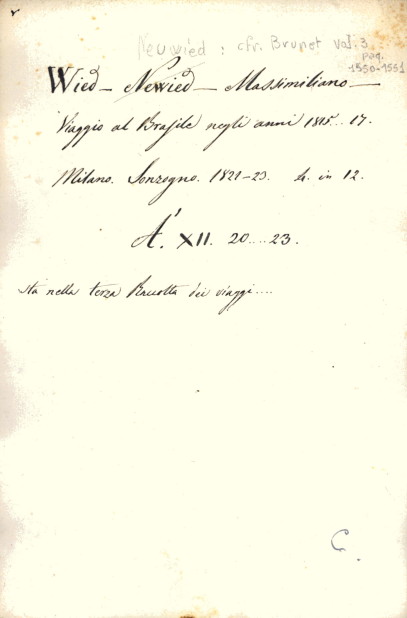 Neuwied : cfr. Brunet vol. 3
pag.
1550-1551
Wied - Newied - Massimiliano -
Viaggio al Brasile negli anni 1815...17.
Milano. Sonzogno. 1821-23. 4. in 12.
A'. XII. 20....23.
sta nella terza Raccolta dei viaggi....
C